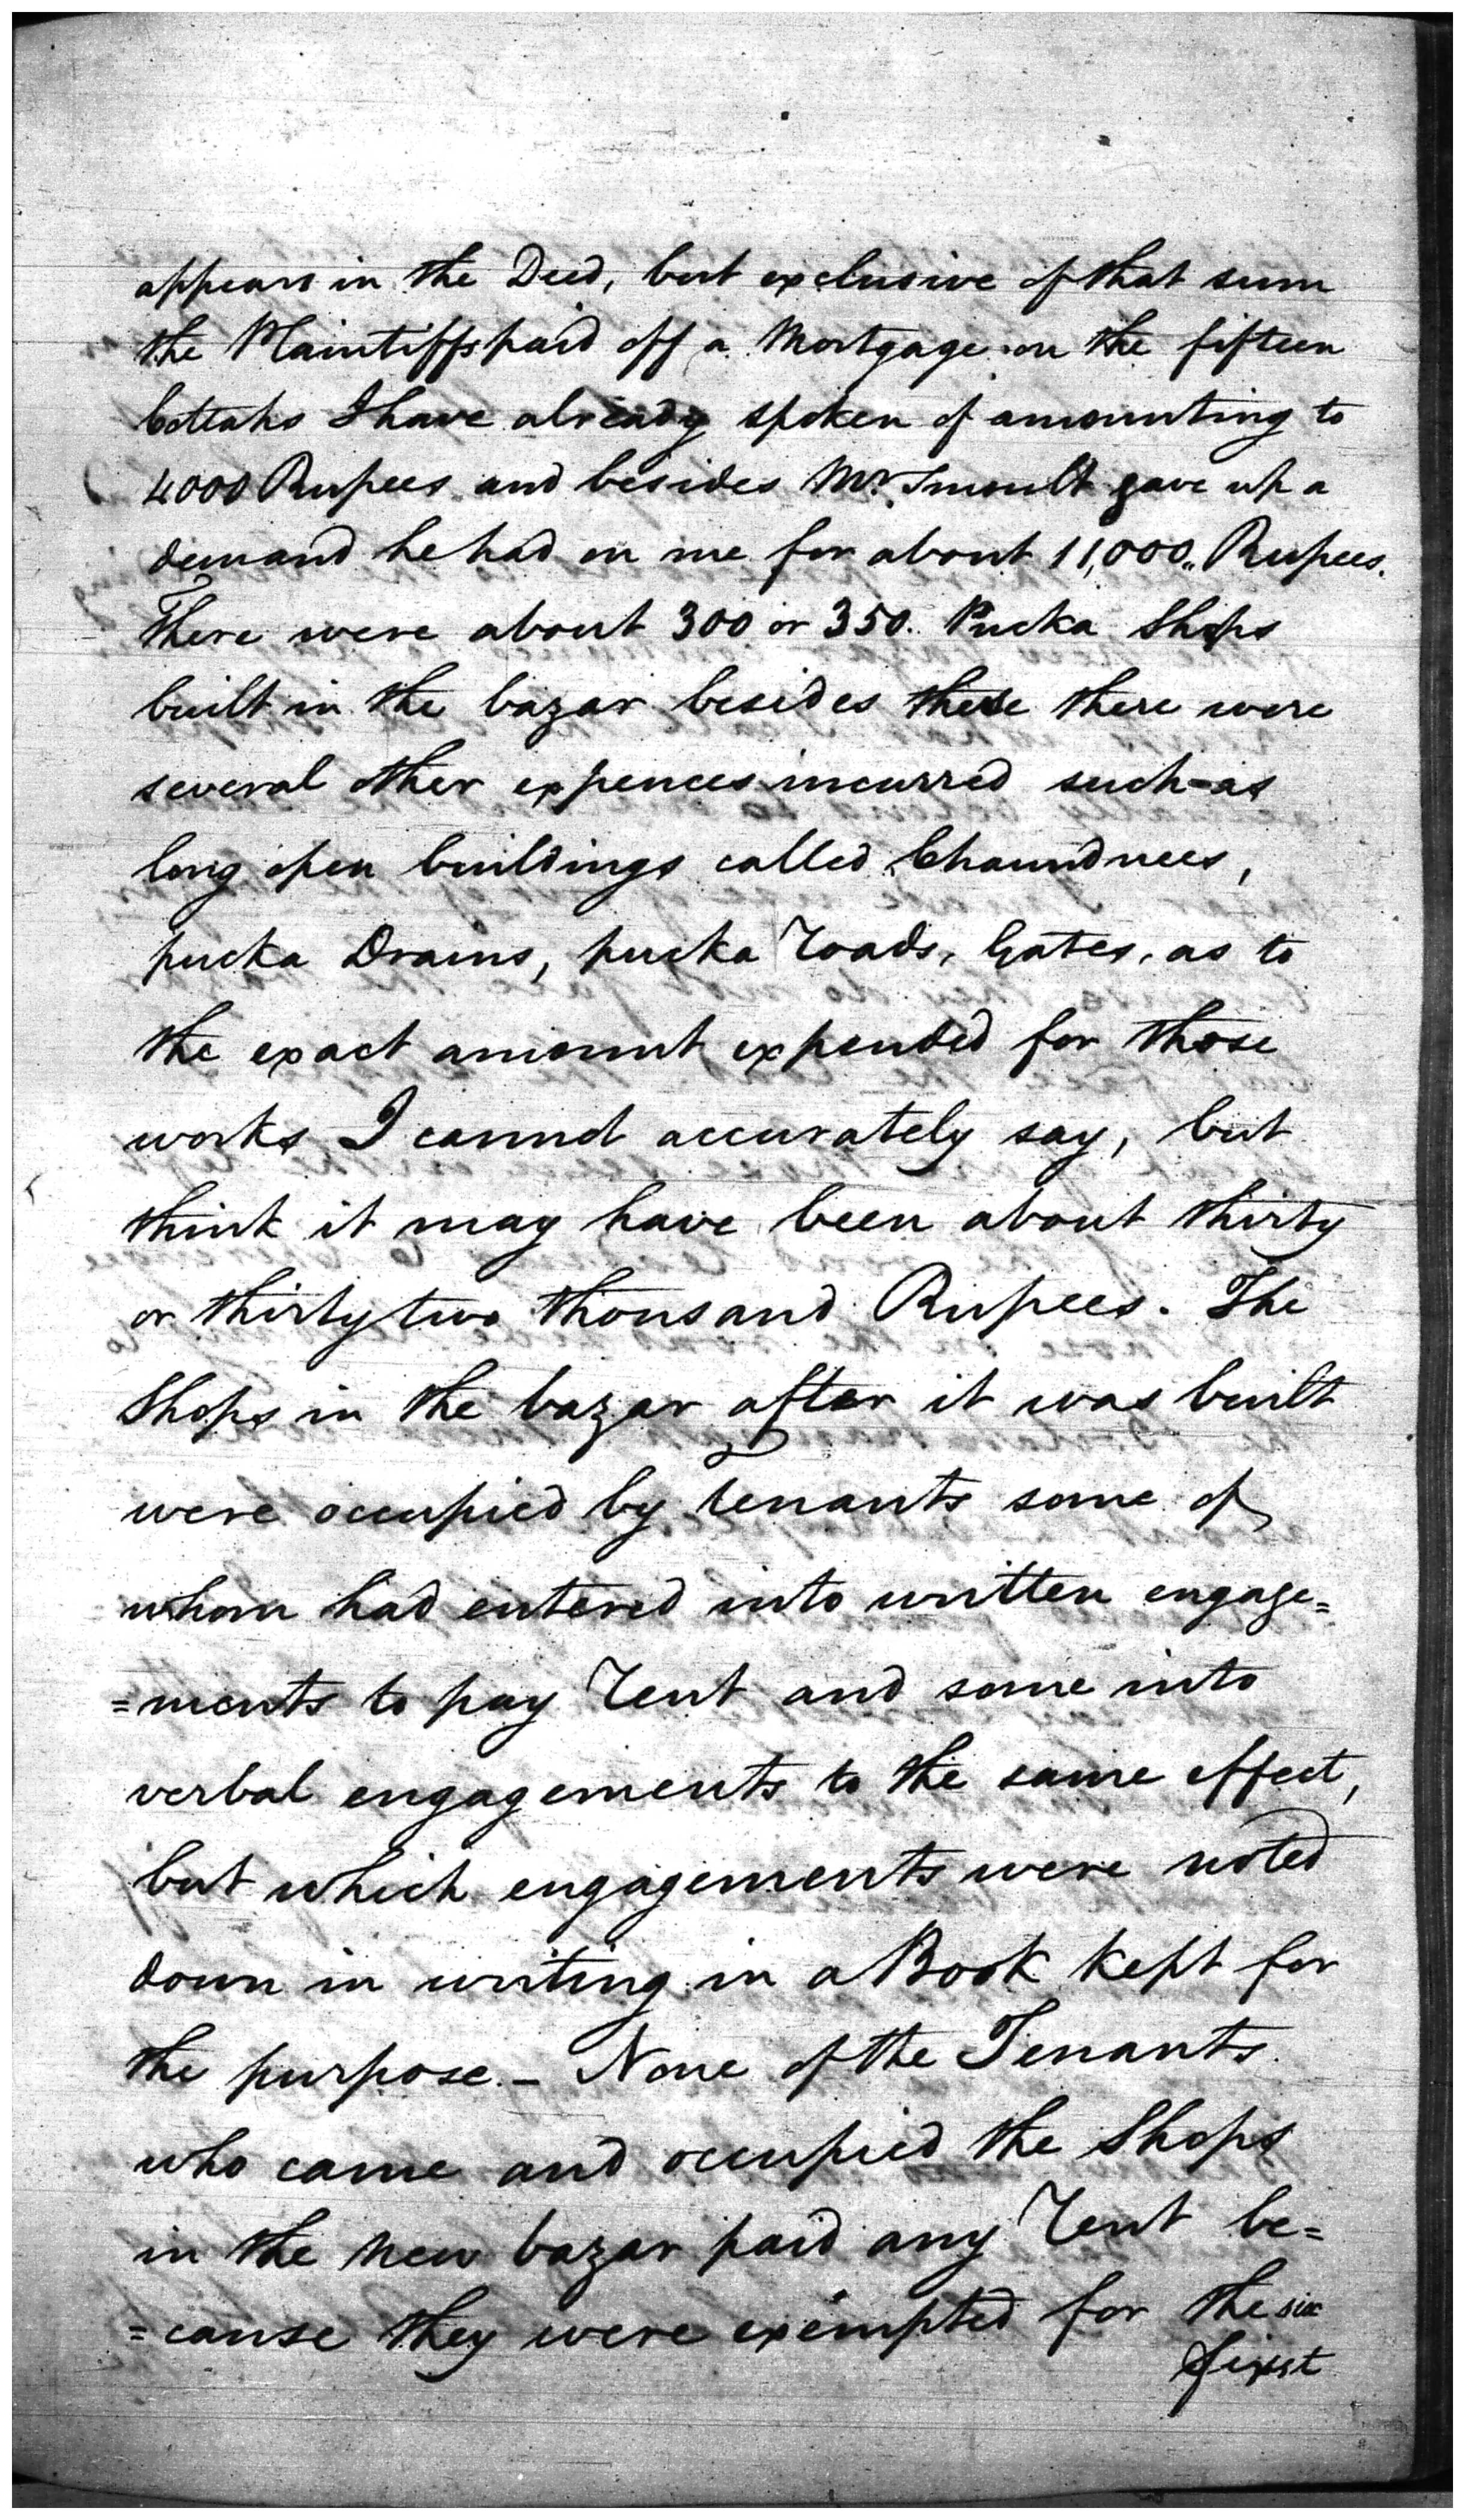 appears in the Deed, but exclusive of that sum
the Plaintiffs paid off a Mortgage on the fifteen
Cottahs I have already spoken of amounting to
4000 Rupees and besides Mr. Smoult gave up a
demand he had on me for about 11,000,, Rupees.
There were about 300 or 350. Pucka Shops
built in the bazar besides these there were
several other expences incurred such=as
long open buildings called Chaundnees,
pucka Drains, pucka roads, Gates, as to
the exact amount expended for those
works I cannot accurately say, but
think it may have been about thirty
or thirty two thousand Rupees. The
Shops in the bazar after it was built
were occupied by tenants some of
whom had entered into written engage=
=ments to pay rent and some into
verbal engagements to the same effect,
but which engagements were noted
down in writing in a Book kept for
the purpose. – None of the Tenants
who came and occupied the Shops
in the new bazar paid any rent be=
=cause they were exempted for the six
first